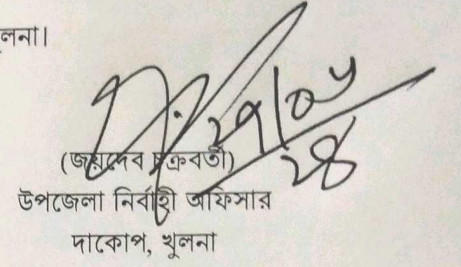 লনা।
(জয়দেব চক্রবর্তী)
উপজেলা নির্বাহী অফিসার
দাকোপ, খুলনা